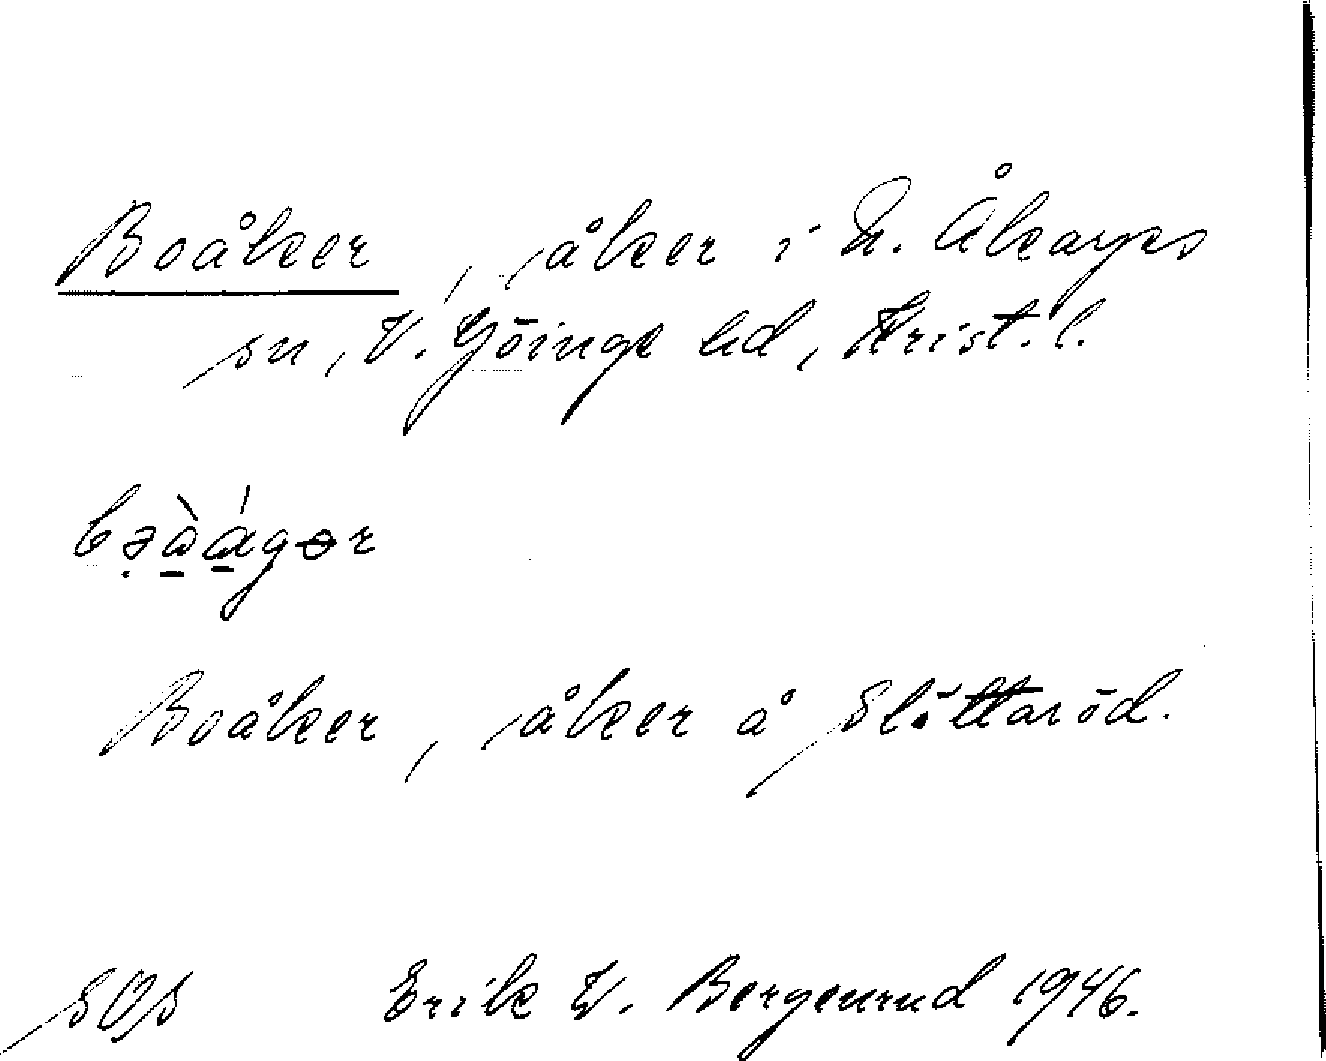 Boåker, åker i N. Åkarps
sn, V. Göinge hd, Krist. l.
Boåker, åker å Slättaröd.
SOS Erik W. Bergenrud 1946.